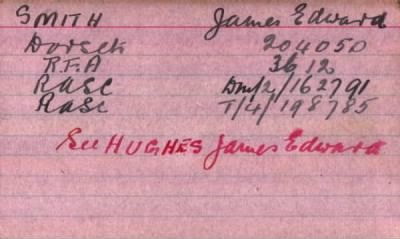 SMITH James Edward
Dorset 204050
R.F.A 3612
RASC Dm/2/162791
RASC T/4/198785
See HUGHES James Edward